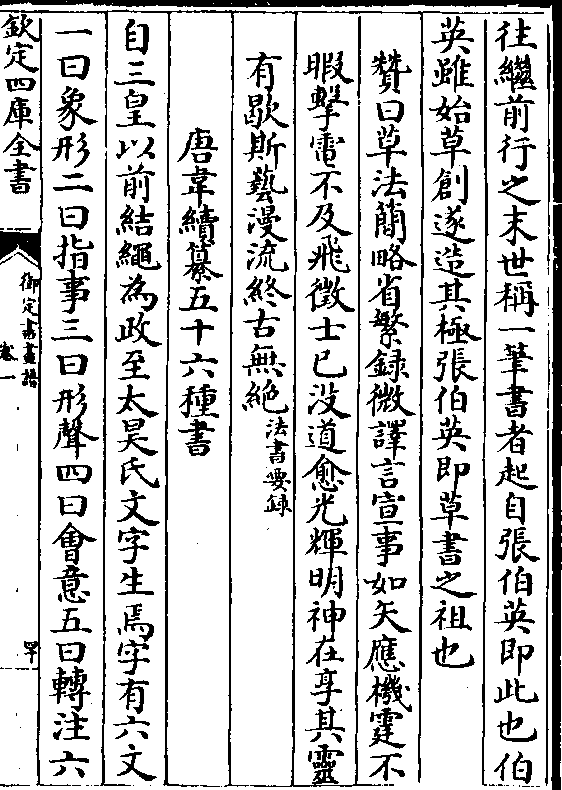 往繼前行之末世稱一筆書者起自張伯英即此也伯
英雖始草創遂造其極張伯英即草書之祖也
贊曰草法簡略省繁録微譯言宣事如矢應機霆不
暇擊電不及飛徴士已没道愈光輝明神在享其靈
有歇斯藝漫流終古無絶法書要録
唐韋續纂五十六種書
自三皇以前結繩為政至太昊氏文字生焉字有六文
一曰象形二曰指事三曰形聲四曰會意五曰轉注六
欽定四庫全書
御定書畫譜
卷一